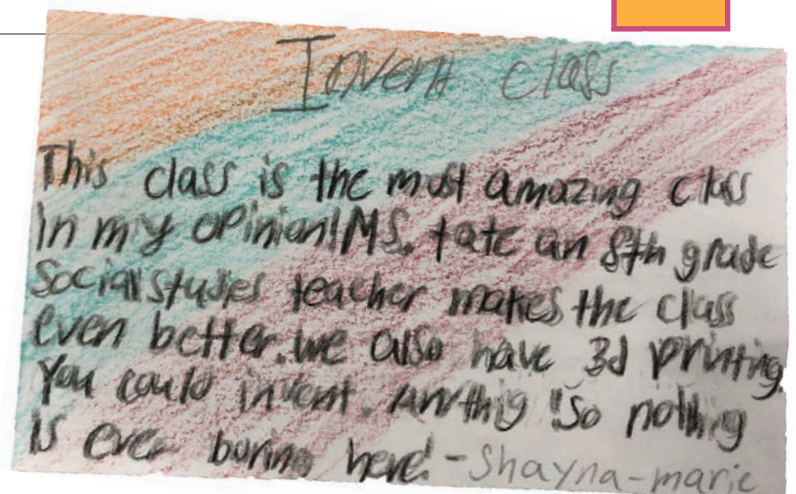 Invent class
This class is the most amazing class
In my opinion! MS. tate an 8th grade
Social studies teacher makes the class
even better. we also have 3d printing.
You could invent. Anrthig !So nothing
is ever boring here! -Shayna-marie